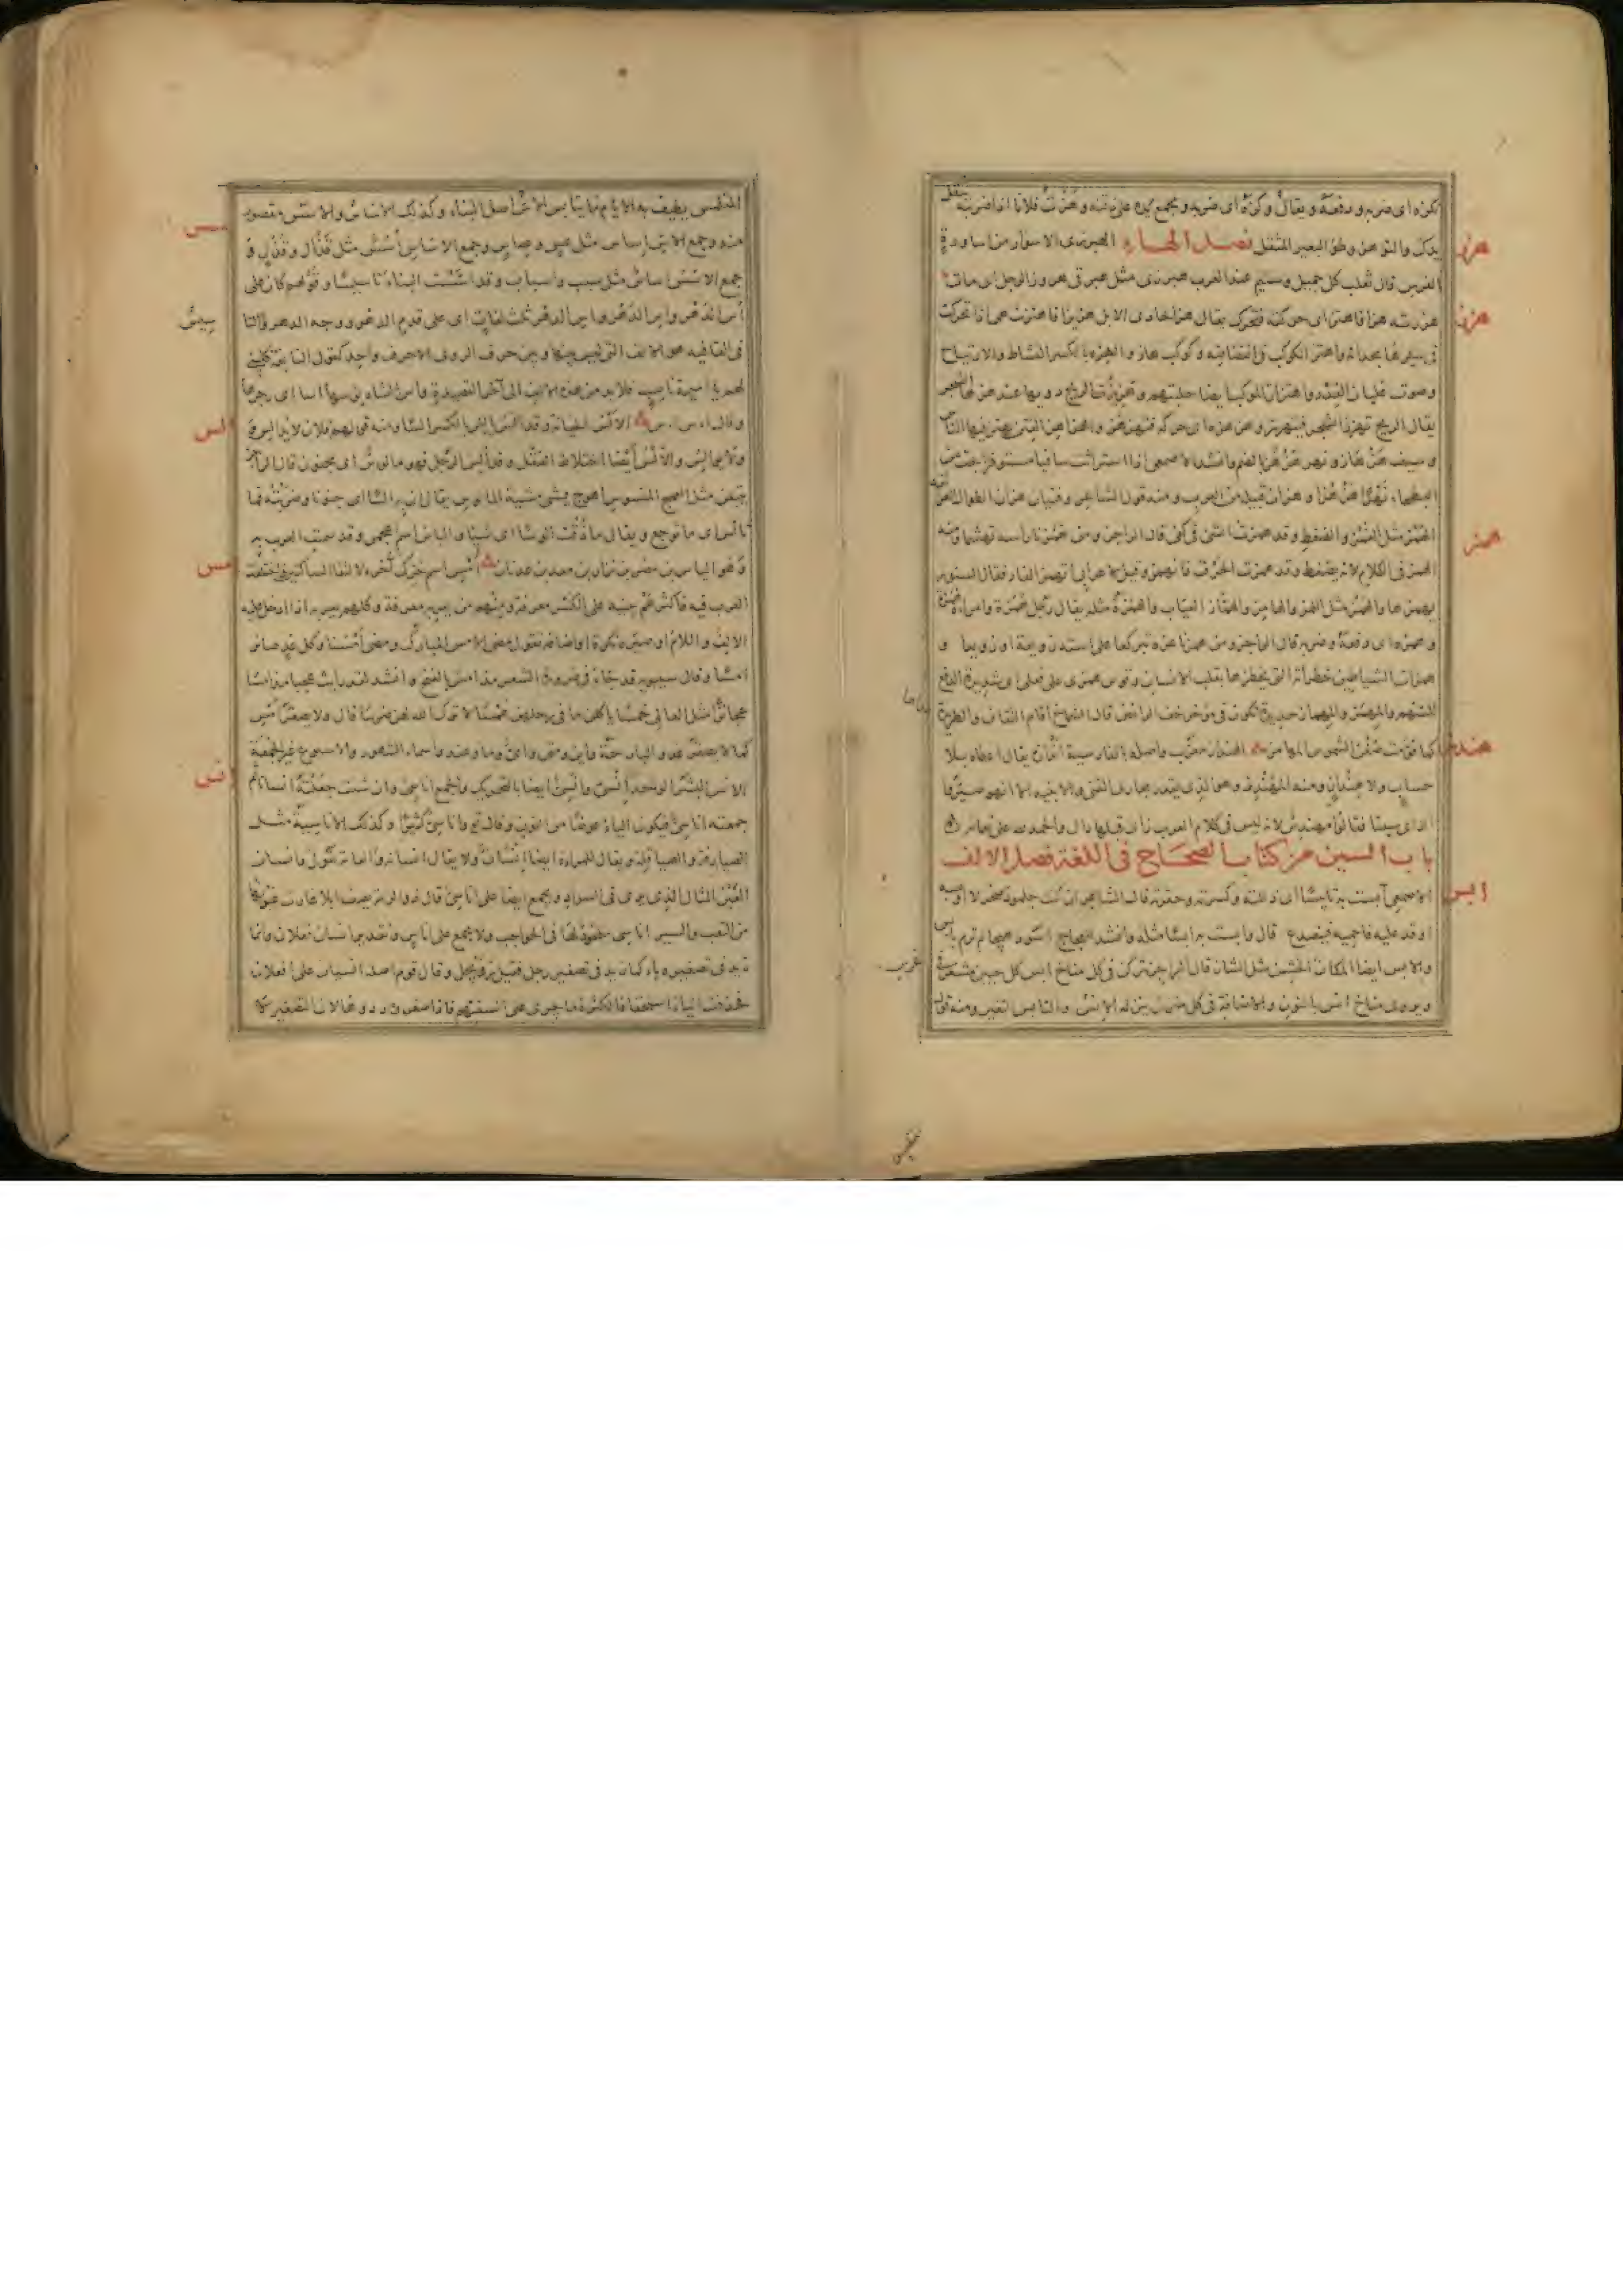 نكزه اى ضربه ودفعه ويقال وكزه اى ضربه ويجمع يده على ذقنه وهزت فلانا اذا ضربته
والتوهز وطؤ البعير المثقل فصل الهاء الهبرزى الاسوار من اساورة
الفرس قال ثعلب كل جميل وسيم عند العرب هبرزى مثل هبرقى هروز الرجل اى مات
هززته هزا فاهتز اى حركته فتحرك يقال هز الحادى الابل هزيزا فاهتزت هى اذا تحركت
فى سيرها بحدائه واهتز الكوكب فى انقضاضه وكوكب هاز والهزة بالكسر النشاط والارتياح
وصوت غليان القدر واهتزاز الموكب ايضا جلبتهم وهزيز الريح دويها عند هزها الشجر
يقال الريح تهزز الشجر فيتهزز وهزهزه اى حركه فتهزهز والهزاهز الفتن يهتز فيها الناس
وسيف هزهاز ونهر هزهز بالضم وانشد الاصمعى اذا استراثت ساقيا مستوفزا بجت من
البطحاء نهرا هزهزا وهزان قبيلة من العرب ومنه قول الشاعر وفتيان هزان الطوال الغرانقة
الهمز مثل الغمز والضغط وقد همزت الشئ فى كفى قال الراجز ومن همزنا راسه تهشما ومنه
الهمز فى الكلام لانه يضغط وقد همزت الحرف فانهمز وقيل لاعرابى اتهمز الفار فقال السنور
يهمزها والهمز مثل اللمز والهامز والهماز العياب والهمزة مثله يقال رجل همزة وامراة همزة
وهمزه اى دفعه وضربه قال الراجز ومن همزنا عزه تبركعا على استه زوبعة او زوبعا و
همزات الشياطين خطراته التى يخطرها بقلب الانسان وقوس همزى على فعلى اى شديدة الدفع
للسهم والمهمز والمهماز حديدة تكون فى مؤخر خف الرائض قال الشماخ اقام الثقاف والطريدة
كما قومت ضغن الشموس المهامز الهنداز معرب واصله بالفارسية اندازه يقال اعطاه بلا
حساب ولا هنداز ومنه المهندز وهو الذى يقدر مجارى القنى والابنية الا انهم صيروا
الزاى سينا فقالوا مهندس لانه ليس فى كلام العرب زاى قبلها دال والحمد لله على
باب السين من كتاب الصحاح فى اللغة فصل الالف
الاصمعى ابست به تابيسا اى ذللته وكسرته وحقرته قال الشاعر ان تك جلمود صخر لا اوبسه
اوقد عليه فاحميه فينصدع قال وابست به ابسا مثله وانشد للعجاج اسود هيجا لم ترم بابس
والابس ايضا المكان الخشن مثل الشاز قال الراجز يتركن فى كل مناخ ابس كل جنين مشعر فى
ويروى مناخ انس بالنون والاضافة فى كل منزل ينزله الانس والتابس التغير ومنه قول
هبرز
هزز
همز
هندز
ابس
المتلمس يطيف به الايام ما يتابس الاس اصل البناء وكذلك الاساس والاسس مقصور
منه وجمع الاس اساس مثل عس وعساس وجمع الاساس اسس مثل قذال وقذل و
جمع الاسس اساس مثل سبب واسباب وقد اسست البناء تاسيسا وقولهم كان على
اس الدهر واس الدهر واس الدهر ثلث لغات اى على قدم الدهر ووجه الدهر والتا
فى القافيه هو الالف التى ليس بينها وبين حرف الروى الا حرف واحد كقول النابغة كلينى
لهم يا اميمة ناصب فلا بد من هذه الالف الى آخر القصيدة واس الشاة يؤسها اسا اى زجرها
وقال اس اس الالس الخيانة وقد الس يالس بالكسر السا ومنه قولهم فلان لا يدالس و
ولا يوالس والالس ايضا اختلاط العقل وقد الس الرجل فهو مالوس اى مجنون قال الراجز
يتبعن مثل العمج المنسوس اهوج يمشى مشية المالوس يقال ان به السا اى جنونا وضربته فما
تالس اى ما توجع ويقال ما ذقت الوسا اى شيئا والياس اسم عجمى وقد سمت العرب به
وهو الياس بن مضر بن نزار بن معد بن عدنان امس اسم حرك آخره لالتقاء الساكنين اختلفت
العرب فيه فاكثرهم يبنيه على الكسر معرفة ومنهم من يعربه معرفة وكلهم يعربه اذا ادخل عليه
الالف واللام او صيره نكرة او اضافه تقول مضى الامس المبارك ومضى امسنا وكل غد صائر
امسا وقال سيبويه قد جاء فى ضرورة الشعر مذ امس بالفتح وانشد لقد رايت عجبا مذ امسا
عجائزا مثل السعالى خمسا ياكلن ما فى رحلهن همسا لا ترك الله لهن ضرسا قال ولا يصغر امس
كما لا يصغر غد والبارحة واين ومتى واى وما وعند واسماء الشهور والاسبوع غير الجمعة
الانس البشر الواحد انسى وانسى ايضا بالتحريك والجمع اناسى وان شئت جعلته انسانا ثم
جمعته اناسى فيكون الياء عوضا من النون وقال تع واناسى كثيرا وكذلك الاناسية مثل
الصيارفة والصياقلة ويقال للمراة ايضا انسان ولا يقال انسانة والعامة تقول وانسان
العين المثال الذى يرى فى السواد ويجمع ايضا على اناسى قال ذو الرمة يصف ابلا غارت عيونها
من التعب والسير اناسى ملحود لها فى الحواجب ولا يجمع على اناس وتقدير انسان فعلان وانما
زيد فى تصغيره ياء كما زيد فى تصغير رجل فقيل رويجل وقال قوم اصله انسيان على افعلان
فحذفت الياء استخفافا لكثرة ما يجرى على السنتهم فاذا صغروه ردوها لان التصغير لا
اسس
الس
امس
انس